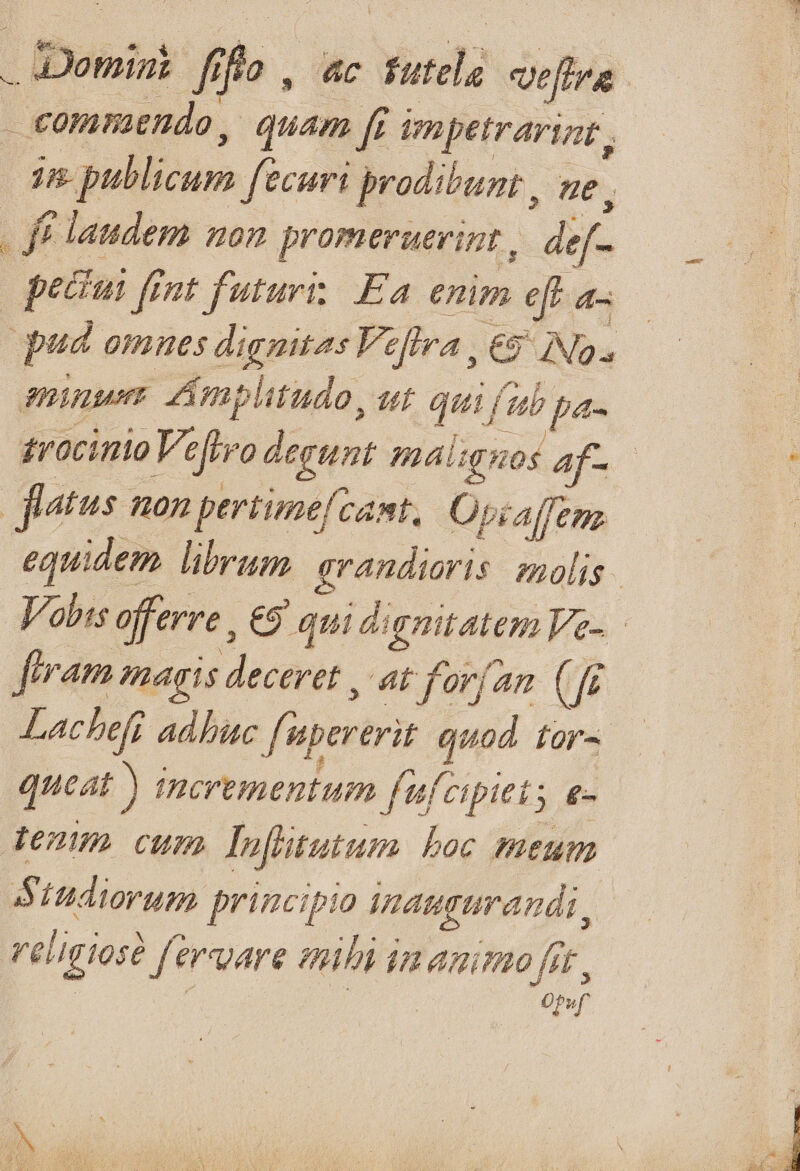 Domini ſiſto , ac tutelæ veſtræ
commendo, quam ſi impetrarint,
in publicum ſecuri prodibunt, ne,
ſi laudem non promeruerint, deſ-
pectui ſint futuri: Ea enim eſt a-
pud omnes dignitas Veſtra, & No-
minum Amplitudo, ut qui ſub pa-
trocinio Veſtro degunt malignos af-
flatus non pertimeſcant. Optaſſem
equidem librum grandioris molis
Vobis offerre, & qui dignitatem Ve-
ſtram magis deceret, at forſan (ſi
Lacheſi adhuc ſupererit quod tor-
queat) incrementum ſuſcipiet; e-
tenim cum Inſtitutum hoc meum
Studiorum principio inaugurandi,
religiosè ſervare mihi in animo ſit,
opuſ